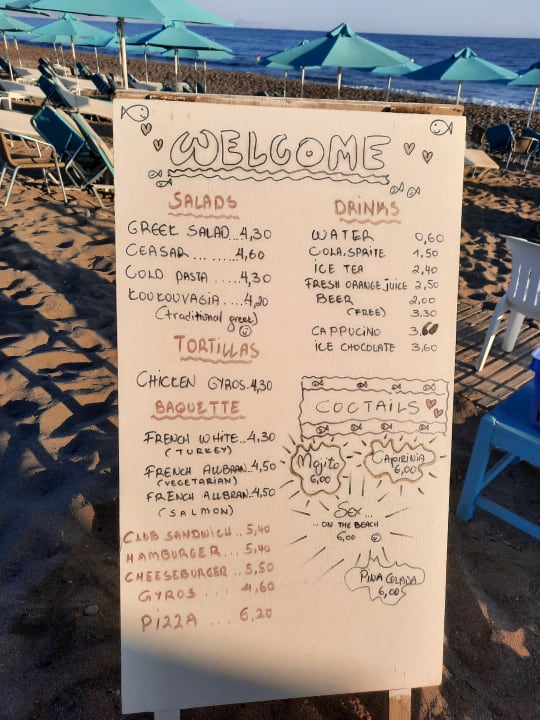 WELCOME
SALADS
GREEK SALAD...4,30
CEASAR.......4,60
COLD PASTA....4,30
KOUKOUVAGIA....4,20
(traditional greek)
TORTILLAS
CHICKEN GYROS.4,30
BAQUETTE
FRENCH WHITE..4,30
(TURKEY)
FRENCH ALLBRAN..4,50
(VEGETARIAN)
FRENCH ALLBRAN..4,50
(SALMON)
CLUB SANDWICH..5,40
HAMBURGER...5,40
CHEESEBURGER..5,50
GYROS....4,60
PIZZA...6,20
DRINKS
WATER 0,60
COLA.SPRITE 1,50
ICE TEA 2,40
FRESH ORANGE JUICE 2,50
BEER 2,00
(FREE) 3,30
CAPPUCINO 3,60
ICE CHOCOLATE 3,60
COCTAILS
Mojito
6,00
CAPIRINIA
6,00
SEX...
...ON THE BEACH
6,00
PINA COLADA
6,00